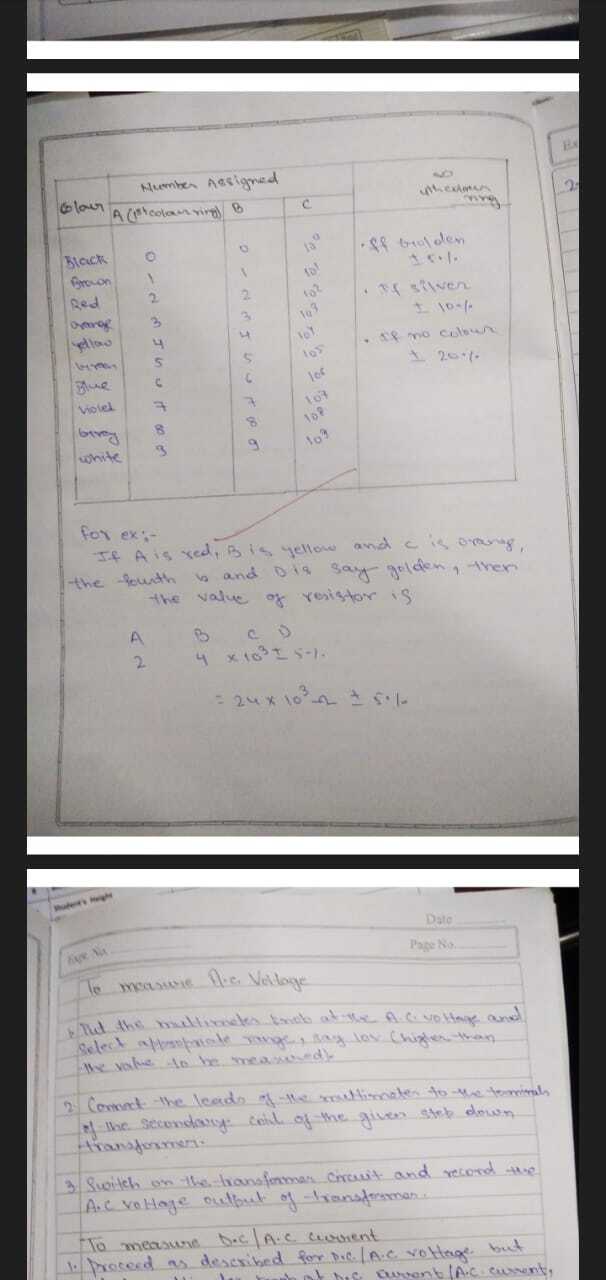 Number Assigned
4th colour ring
Colour A (1st colour ring) B C
Black 0 0 10⁰
Brown 1 1 10¹
Red 2 2 10²
orange 3 3 10³
yellow 4 4 10⁴
green 5 5 10⁵
Blue 6 6 10⁶
violet 7 7 10⁷
Grey 8 8 10⁸
white 9 9 10⁹
• If Golden
± 5%
• If silver
± 10%
• If no colour
± 20%
for ex:-
If A is red, B is yellow and C is orange,
the fourth b and D is say golden, then
the value of resistor is
A B C D
2 4 × 10³ ± 5%
= 24 × 10³ Ω ± 5%
Student's Height
Date
Page No.
Page No.
To measure A.C. Voltage
1. Put the multimeter knob at the A.C. voltage and
select appropriate range, say 10v (higher than
the value to be measured).
2. Connect the leads of the multimeter to the terminals
of the secondary coil of the given step down
transformer.
3. Switch on the transformer circuit and record the
A.C voltage output of transformer.
To measure D.C/A.C current
1. Proceed as described for D.C/A.C voltage but
knob at D.C current/A.C. current,